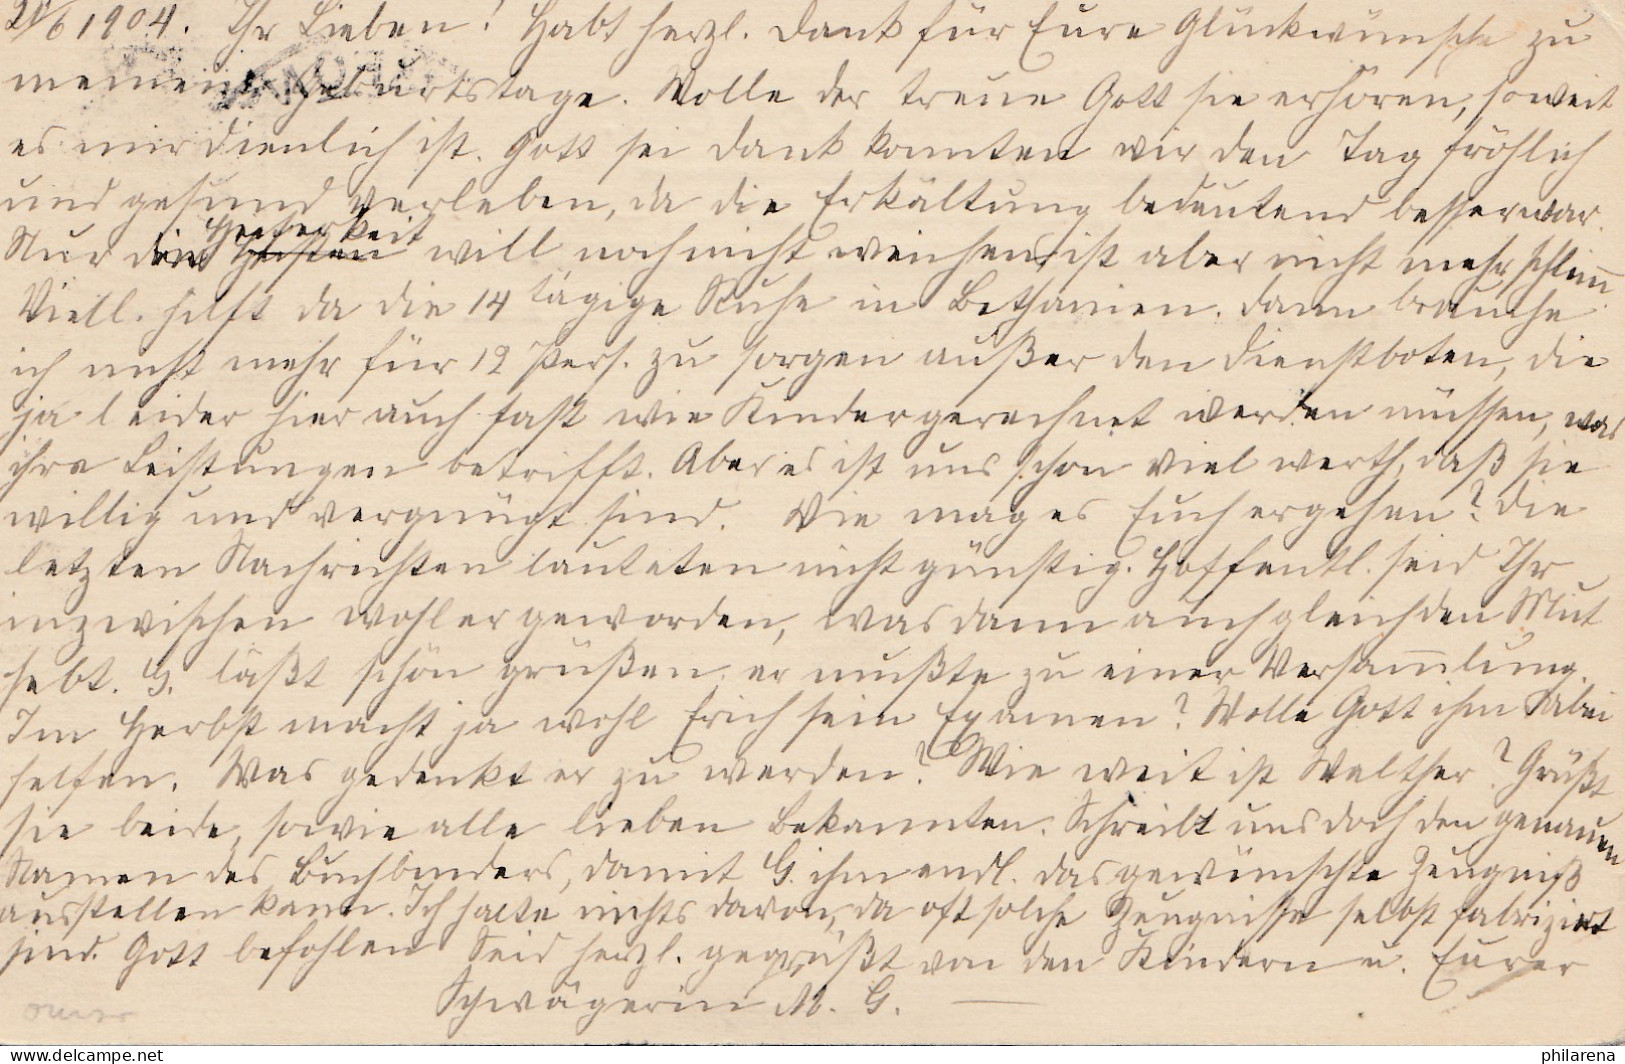 21/6 1904. Ihr Lieben! Habt herzl. Dank für Eure Glückwünsche zu
meinem Geburtstage. Wolle der treue Gott sie erhören, soweit
es mir dienlich ist. Gott sei Dank konnten wir den Tag fröhlich
und gesund verleben, da die Erkältung bedeutend besser war.
Heiserkeit
Nur die Husten will noch nicht weichen, ist aber nicht mehr schlimm.
Viell. hilft da die 14 tägige Ruhe in Bethanien. Dann brauche
ich nicht mehr für 12 Pers. zu sorgen außer den Dienstboten, die
ja leider hier auch fast wie Kinder gerechnet werden müssen, was
ihre Leistungen betrifft. Aber es ist uns schon viel werth, daß sie
willig und vergnügt sind. Wie mag es Euch ergehen? Die
letzten Nachrichten lauteten nicht günstig. Hoffentl. seid Ihr
inzwischen wohler geworden, was dann auch gleich den Mut
hebt. G. läßt schön grüßen, er mußte zu einer Versammlung.
Im Herbst macht ja wohl Erich sein Examen? Wolle Gott ihm dabei
helfen. Was gedenkt er zu werden? Wie weit ist Walther? Grüßt
sie beide, sowie alle lieben Bekannten. Schreibt uns doch den genauen
Namen des Buchbinders, damit G. ihm endl. das gewünschte Zeugniß
ausstellen kann. Ich halte nichts davon, da oft solche Zeugnisse selbst fabriziert
sind. Gott befohlen Seid herzl. gegrüßt von den Kindern u. Eurer
Schwägerin M. G.
www.delcampe.net
philarena